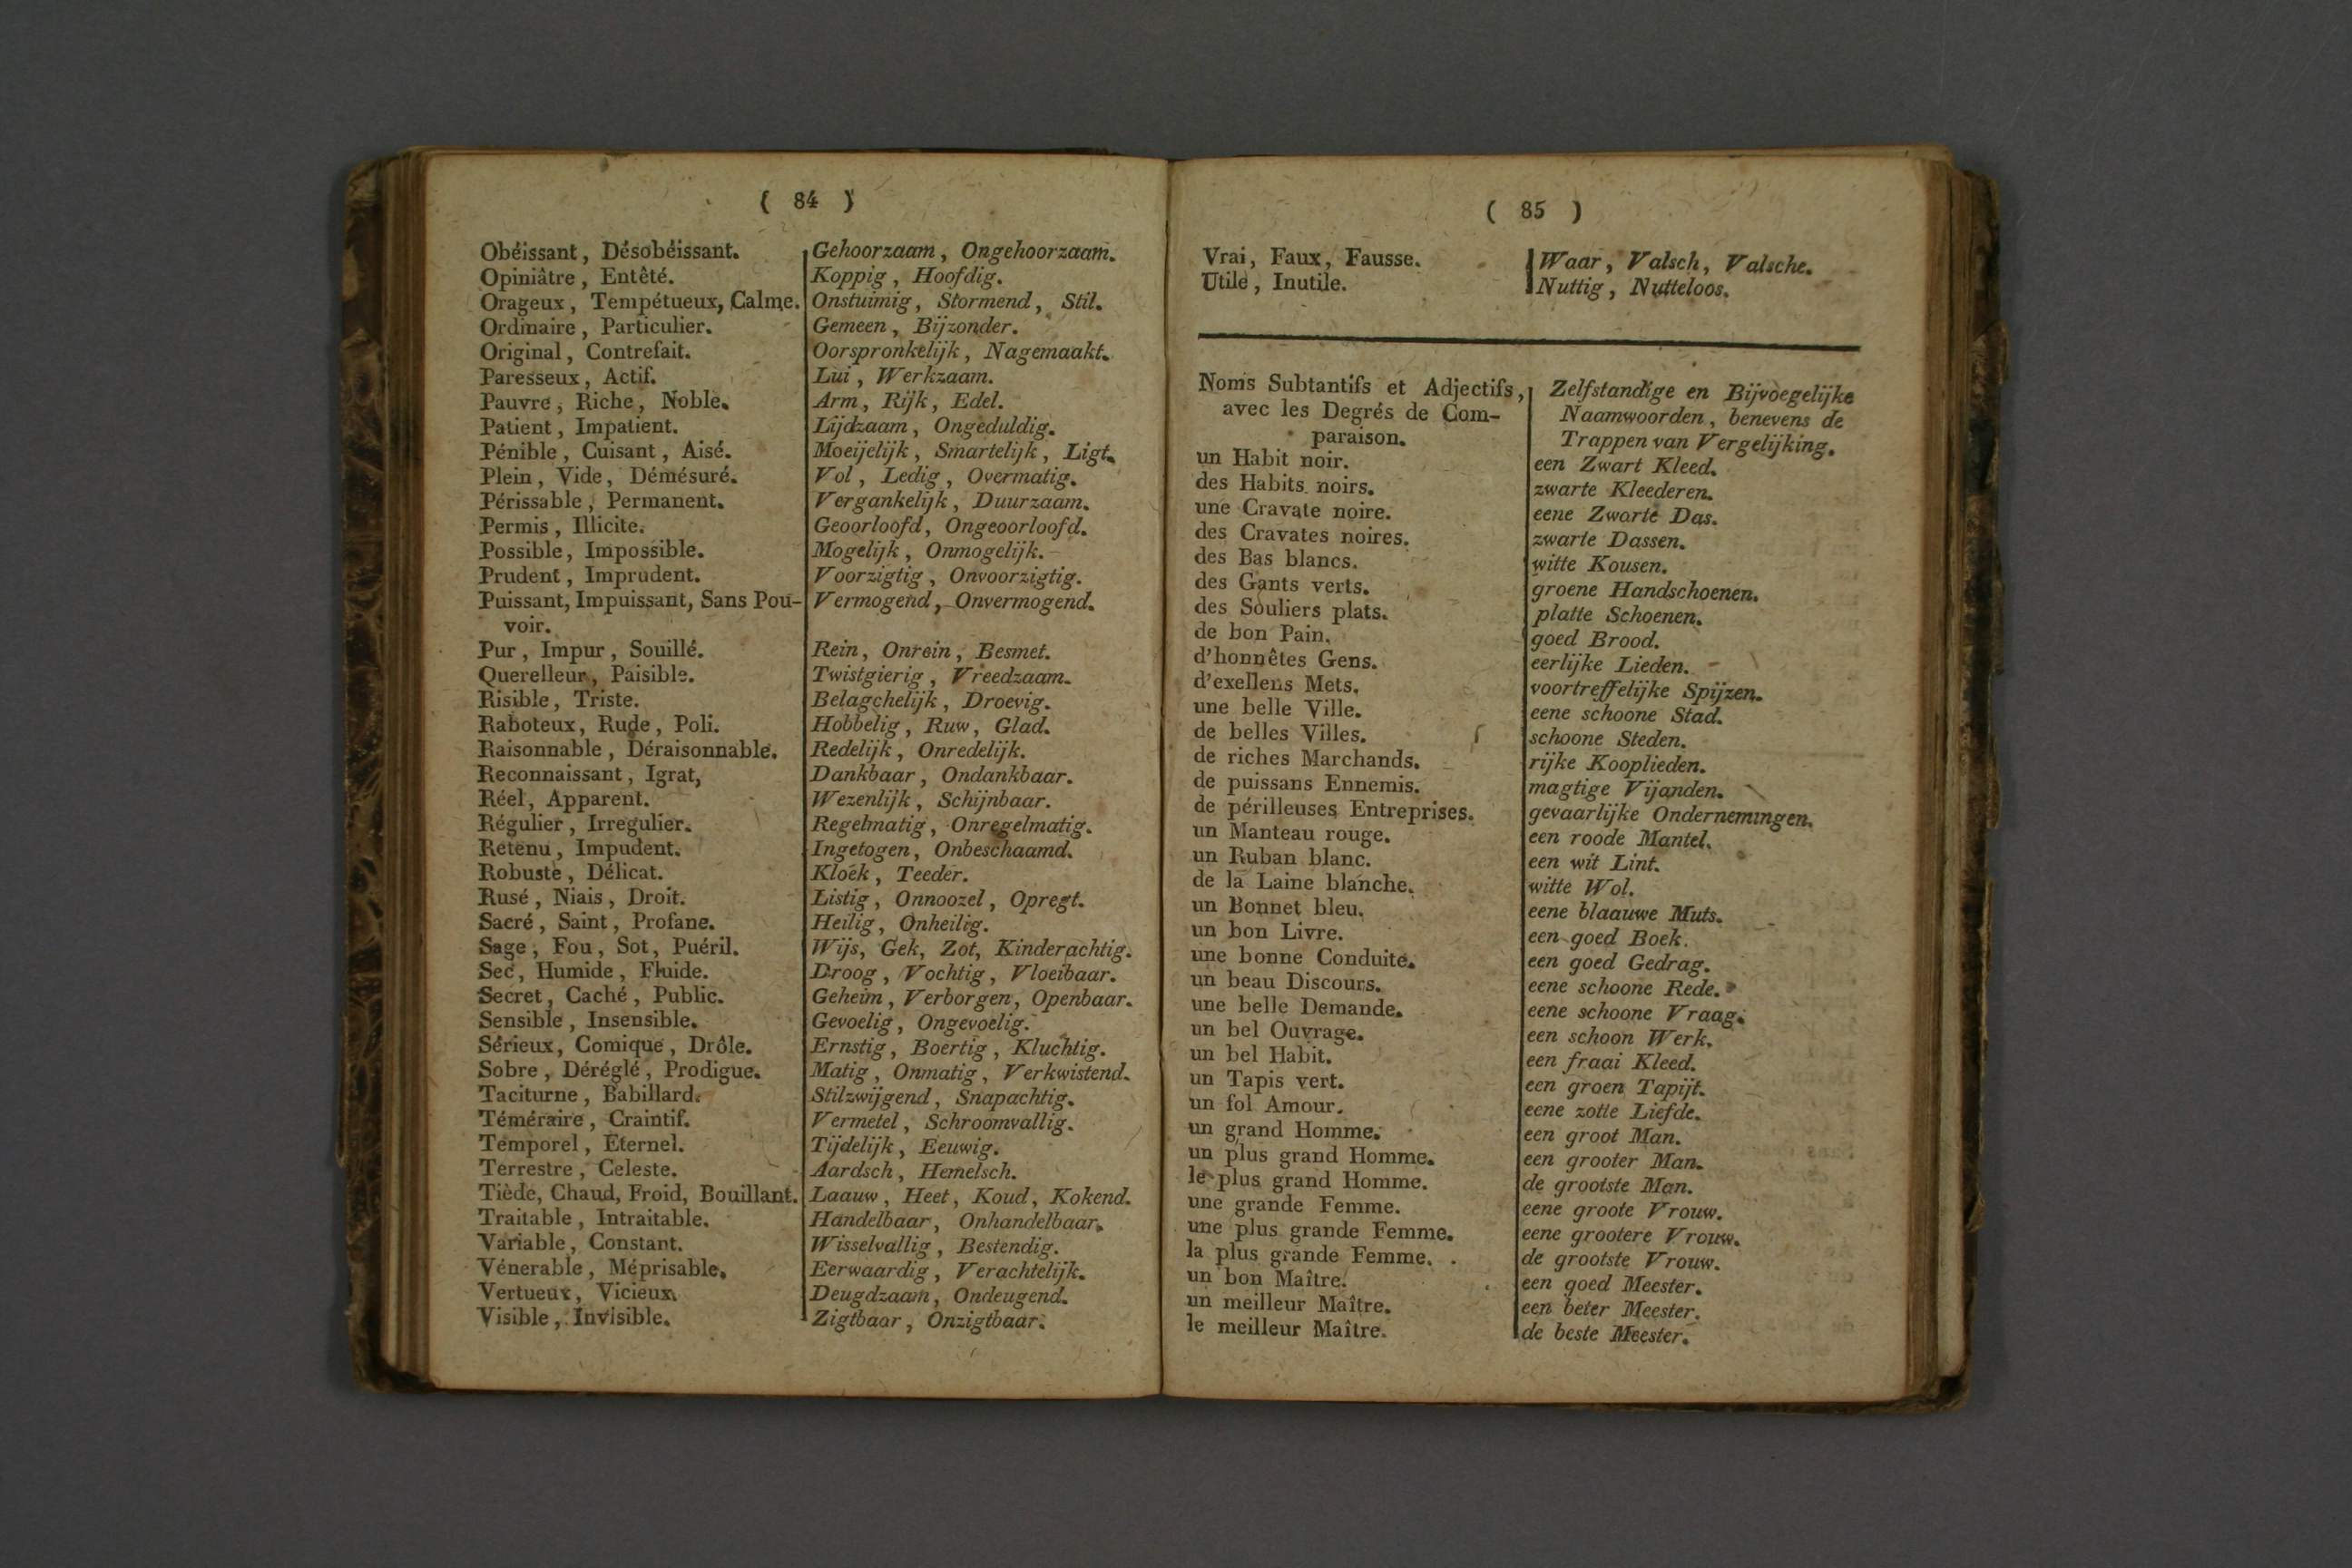 ( 84 )
Obéissant, Désobéissant.
Opiniâtre, Entêté.
Orageux, Tempétueux, Calme.
Ordinaire, Particulier.
Original, Contrefait.
Paresseux, Actif.
Pauvre, Riche, Noble.
Patient, Impatient.
Pénible, Cuisant, Aisé.
Plein, Vide, Démésuré.
Périssable, Permanent.
Permis, Illicite.
Possible, Impossible.
Prudent, Imprudent.
Puissant, Impuissant, Sans Pou-
voir.
Pur, Impur, Souillé.
Querelleur, Paisible.
Risible, Triste.
Raboteux, Rude, Poli.
Raisonnable, Déraisonnable.
Reconnaissant, Igrat,
Réel, Apparent.
Régulier, Irregulier.
Retenu, Impudent.
Robuste, Délicat.
Rusé, Niais, Droit.
Sacré, Saint, Profane.
Sage, Fou, Sot, Puéril.
Sec, Humide, Fluide.
Secret, Caché, Public.
Sensible, Insensible.
Sérieux, Comique, Drôle.
Sobre, Déréglé, Prodigue.
Taciturne, Babillard.
Téméraire, Craintif.
Temporel, Éternel.
Terrestre, Celeste.
Tiède, Chaud, Froid, Bouillant.
Traitable, Intraitable.
Variable, Constant.
Vénerable, Méprisable.
Vertueux, Vicieux.
Visible, Invisible.
Gehoorzaam, Ongehoorzaam.
Koppig, Hoofdig.
Onstuimig, Stormend, Stil.
Gemeen, Bijzonder.
Oorspronkelijk, Nagemaakt.
Lui, Werkzaam.
Arm, Rijk, Edel.
Lijdzaam, Ongeduldig.
Moeijelijk, Smartelijk, Ligt.
Vol, Ledig, Overmatig.
Vergankelijk, Duurzaam.
Geoorloofd, Ongeoorloofd.
Mogelijk, Onmogelijk.
Voorzigtig, Onvoorzigtig.
Vermogend, Onvermogend.
Rein, Onrein, Besmet.
Twistgierig, Vreedzaam.
Belagchelijk, Droevig.
Hobbelig, Ruw, Glad.
Redelijk, Onredelijk.
Dankbaar, Ondankbaar.
Wezenlijk, Schijnbaar.
Regelmatig, Onregelmatig.
Ingetogen, Onbeschaamd.
Kloek, Teeder.
Listig, Onnoozel, Opregt.
Heilig, Onheilig.
Wijs, Gek, Zot, Kinderachtig.
Droog, Vochtig, Vloeibaar.
Geheim, Verborgen, Openbaar.
Gevoelig, Ongevoelig.
Ernstig, Boertig, Kluchtig.
Matig, Onmatig, Verkwistend.
Stilzwijgend, Snapachtig.
Vermetel, Schroomvallig.
Tijdelijk, Eeuwig.
Aardsch, Hemelsch.
Laauw, Heet, Koud, Kokend.
Handelbaar, Onhandelbaar.
Wisselvallig, Bestendig.
Eerwaardig, Verachtelijk.
Deugdzaam, Ondeugend.
Zigtbaar, Onzigtbaar.
( 85 )
Vrai, Faux, Fausse.
Utile, Inutile.
Waar, Valsch, Valsche.
Nuttig, Nutteloos.
Noms Subtantifs et Adjectifs,
avec les Degrés de Com-
paraison.
un Habit noir.
des Habits noirs.
une Cravate noire.
des Cravates noires.
des Bas blancs.
des Gants verts.
des Souliers plats.
de bon Pain.
d'honnêtes Gens.
d'exellens Mets.
une belle Ville.
de belles Villes.
de riches Marchands.
de puissans Ennemis.
de périlleuses Entreprises.
un Manteau rouge.
un Ruban blanc.
de la Laine blanche.
un Bonnet bleu.
un bon Livre.
une bonne Conduite.
un beau Discours.
une belle Demande.
un bel Ouvrage.
un bel Habit.
un Tapis vert.
un fol Amour.
un grand Homme.
un plus grand Homme.
le plus grand Homme.
une grande Femme.
une plus grande Femme.
la plus grande Femme.
un bon Maître.
un meilleur Maître.
le meilleur Maître.
Zelfstandige en Bijvoegelijke
Naamwoorden, benevens de
Trappen van Vergelijking.
een Zwart Kleed.
zwarte Kleederen.
eene Zwarte Das.
zwarte Dassen.
witte Kousen.
groene Handschoenen.
platte Schoenen.
goed Brood.
eerlijke Lieden.
voortreffelijke Spijzen.
eene schoone Stad.
schoone Steden.
rijke Kooplieden.
magtige Vijanden.
gevaarlijke Ondernemingen.
een roode Mantel.
een wit Lint.
witte Wol.
eene blaauwe Muts.
een goed Boek.
een goed Gedrag.
eene schoone Rede.
eene schoone Vraag.
een schoon Werk.
een fraai Kleed.
een groen Tapijt.
eene zotte Liefde.
een groot Man.
een grooter Man.
de grootste Man.
eene groote Vrouw.
eene grootere Vrouw.
de grootste Vrouw.
een goed Meester.
een beter Meester.
de beste Meester.